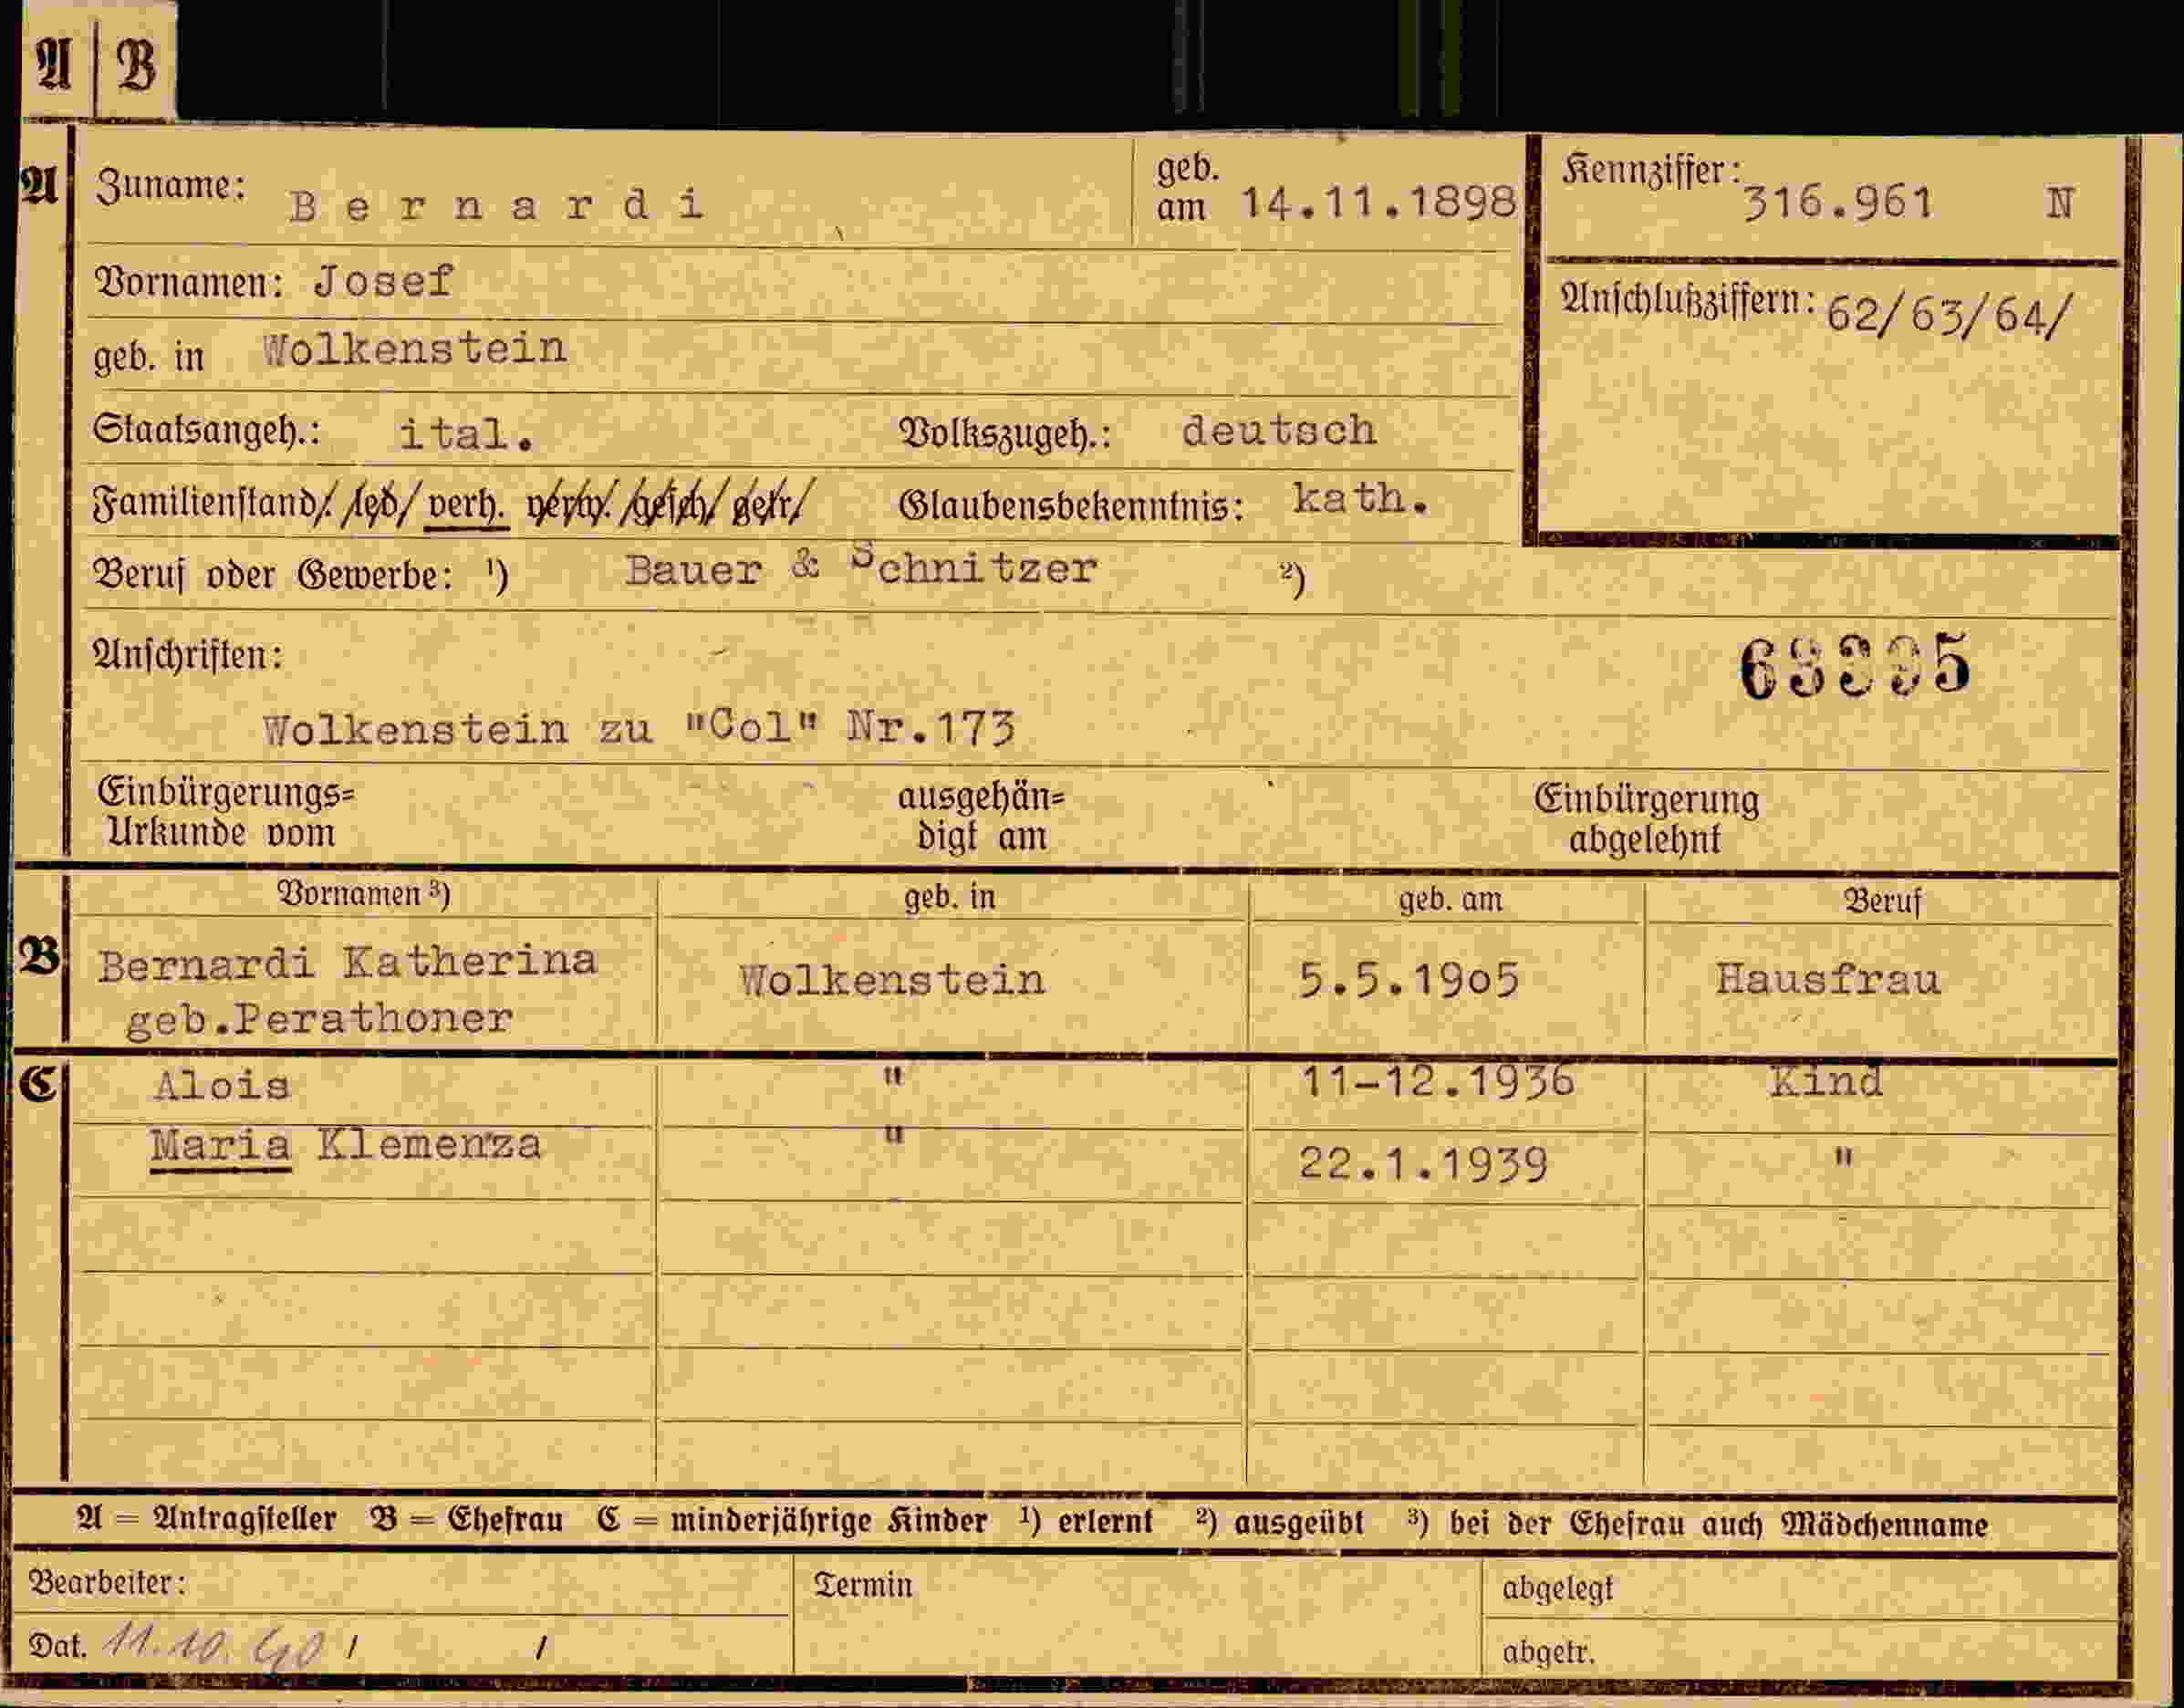 A | B
A Zuname: Bernardi geb. am 14.11.1898 Kennziffer: 316.961 N
Vornamen: Josef Anschlußziffern: 62/63/64/
geb. in Wolkenstein
Staatsangeh.: ital. Volkszugeh.: deutsch
Familienstand/. /led/ verh. verw. /gesch/ getr/ Glaubensbekenntnis: kath.
Beruf oder Gewerbe: ¹) Bauer & Schnitzer ²)
Anschriften:
Wolkenstein zu "Col" Nr.173
Einbürgerungs= ausgehän= Einbürgerung
Urkunde vom digt am abgelehnt
Vornamen ³) geb. in geb. am Beruf
B Bernardi Katherina Wolkenstein 5.5.1905 Hausfrau
geb.Perathoner
C Alois " 11-12.1936 Kind
Maria Klemenza " 22.1.1939 "
A = Antragsteller B = Ehefrau C = minderjährige Kinder ¹) erlernt ²) ausgeübt ³) bei der Ehefrau auch Mädchenname
Bearbeiter: Termin abgelegt
Dat. 11.10.40 / / abgetr.